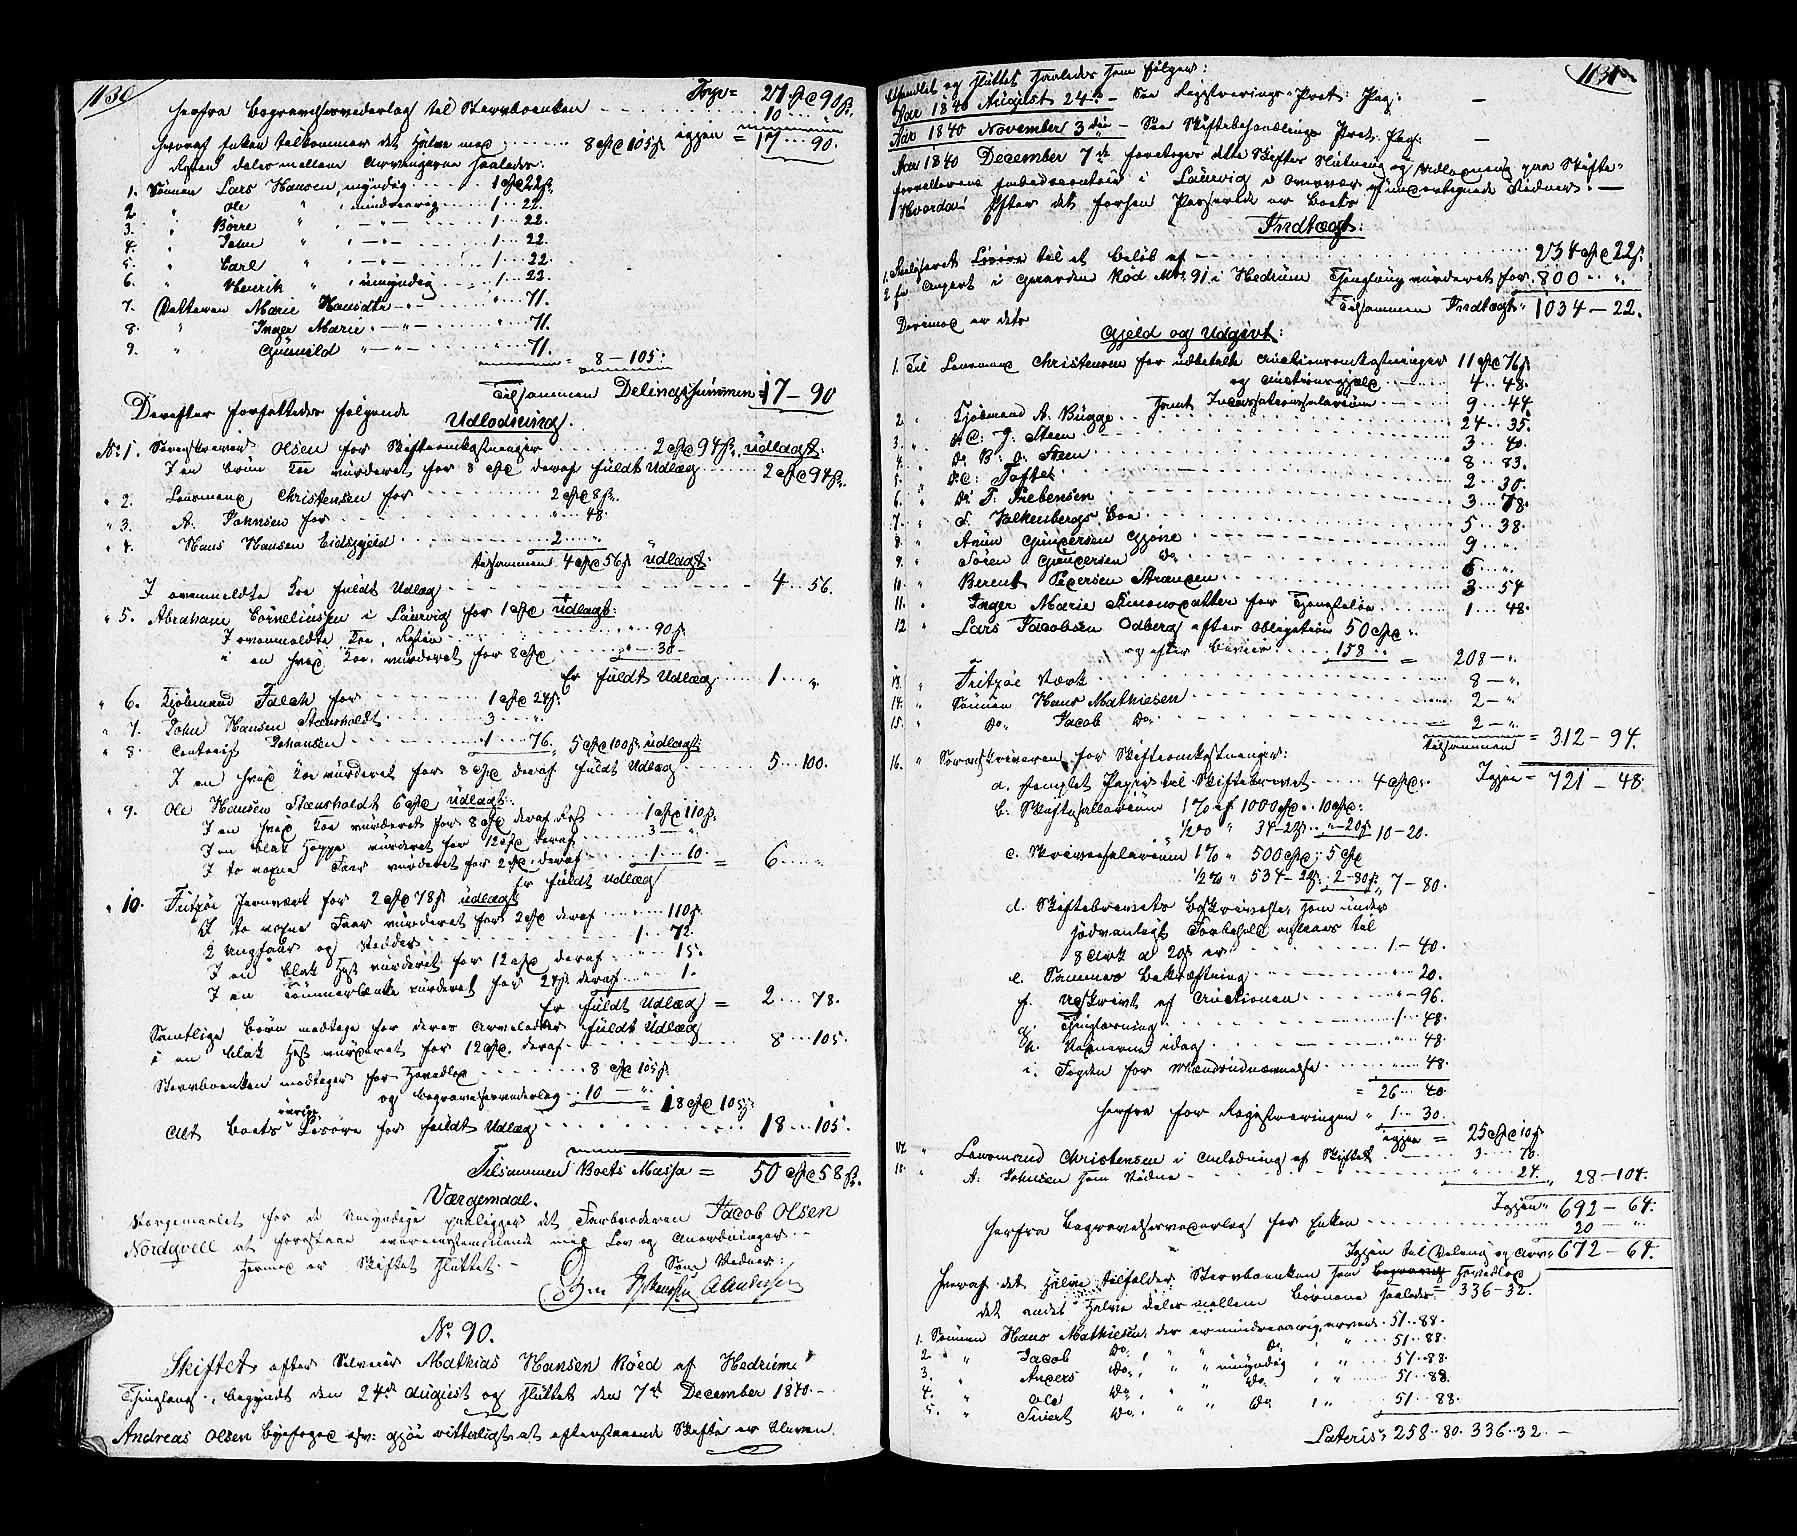 1130
Igjen = 27 Spd 90 ß.
herfra Begravelsesvederlag til Stervboenken 10 .. "
igjen = 17 .. 90.
hvoraf Enken tilkommer det Halve med 8 Spd 105 ß
Resten deles mellem Arvingerne saaledes:
1. Sønnen Lars Hansen, myndig 1 Spd 22 ß
2. " Ole " " mindreaarig 1 .. 22.
3. " Børre " " — " — 1 .. 22.
4. " John " " — " — 1 .. 22.
5. " Carl " " — " — 1 .. 22.
6. " Henrik " " umyndig 1 .. 23.
7. Datteren Marie Hansdtr — " .. 71.
8. " Inger Marie — " — " .. 71.
9. " Gunnild — " — " .. 71.
= 8 — 105.
Tilsammen Delingssummen 17 — 90
Derefter forfattedes følgende
Udlodning.
No. 1. Sorenskriver Olsen for Skifteomkostninger 2 Spd 94 ß. udlagt:
I en brun Koe vurderet for 8 Spd deraf fuldt Udlæg 2 Spd 94 ß.
" 2. Lensmand Christensen for 2 Spd 8 ß.
" 3. A. Johnsen for " .. 48.
" 4. Hans Hansen Eidsgjeld 2 .. "
tilsammen 4 Spd 56 ß udlagt:
I ovenmeldte Koe fuldt Udlæg 4 .. 56.
" 5. Abraham Cornelinssen i Laurvig for 1 Spd udlagt:
I ovenmeldte Koe, Resten " .. 90 ß
i en hvid Koe, vurderet for 8 Spd " .. 30
Er fuldt Udlæg 1 .. "
" 6. Kjøbmand Falch for 1 Spd 24 ß.
" 7. John Hansen Stænsholdt 3 .. "
" 8. Controleur Johansen 1 .. 76. 5 Spd 100 ß udlagt:
I en hvid Koe vurderet for 8 Spd deraf fuldt Udlæg 5 .. 100.
" 9. Ole Hansen Stænsholdt 6 Spd udlagt:
I en hvid Koe vurderet for 8 Spd deraf Rest 1 Spd 110 ß.
I en blak Hoppe vurderet for 12 Spd deraf 3 .. "
I to voxne Faar vurderet for 2 Spd. deraf 1 .. 10 = 6 .. "
Er fuldt Udlæg
" 10. Fritzøe Jernværk for 2 Spd 78 ß. udlagt
I to voxne Faar vurderet for 2 Spd deraf " .. 110 ß.
2 Ungfaar og Vædder 1 .. 72.
I en blak Hest vurderet for 12 Spd deraf " .. 15.
I en Tømmerlænke vurderet for 24 ß. deraf " .. 1.
Er fuldt Udlæg = 2 .. 78.
Samtlige Børn modtage for deres Arvelodder fuldt Udlæg
i en blak Hest vurderet for 12 Spd. deraf 8 .. 105.
Stervboenken modtager for Hovedlod 8 Spd 105 ß.
og Begravelsesvederlag 10 — "
= 18 Spd 105 ß.
Alt Boets øvrige Løsøre for fuldt Udlæg 18 .. 105.
Tilsammen Boets Massa = 50 Spd 58 ß.
Værgemaal.
Værgemaalet for de Umyndige paaligger det Farbroderen Jacob Olsen
Nordqvell at forestaae overensstemmende med Lov og Anordninger. —
Hermed er Skiftet sluttet. —
Som Vidner:
No. 90.
Skiftet efter Selveier Mathias Hansen Röed af Hedrums
Thinglaug, begyndt den 24de August og sluttet den 7de December 1840. —
Andreas Olsen Byefoged &c: gjør vitterligt at efterstaaende Skifte er bleven
1131.
behandlet og sluttet saaledes som følger:
Aar 1840 August 24de — See Registrerings-Prot: Pag: —
Aar 1840 November 3die — See Skiftebehandlings Prot: Pag: —
Aar 1840 December 7de foretoges dette Skiftes Slutning og Udlodning paa Skifte-
forvalterens Embedscontoir i Laurvig i Overvær af undertegnede Vidner. —
Hvorda: Efter det forhen Passerede er Boets
Indtægt:
1. Realiseret Løsøre til et Beløb af 234 Spd 22 ß.
2. En Anpart i Gaarden Röd No. 91 i Hedrum Thinglaug vurderet for 800 .. "
Tilsammen Indtægt 1034 — 22.
Derimod er dets
Gjeld og Udgivt:
1. Til Lensmand Christensen for udbetalte Auctionsomkostninger 11 Spd 76 ß
og Auctionsgjæld 4 .. 48.
samt Incassationssalarium 9 .. 44
2. " Kjøbmand A. Bugge 24 .. 35.
3. " do C: J. Steen 3 .. 40.
4. " do B. A. Steen 8 .. 83.
5. " do C: Toftes 2 .. 30.
6. " do T. Trebensen 3 .. 78.
7. " S. Falkenbergs Boe 5 .. 38.
8. " Arum Gundersen Gjøne 9 .. "
9. " Søren Gundersen do 6 .. "
10. " Berent Pedersen Stranden 3 .. 54
11. " Inger Marie Simonsdatter for Tjenesteløn 1 .. 48.
12 " Lars Jacobsen Odberg efter Obligation 50 Spd "
og efter Beviis 158 .. = 208 — "
13. " Fritzøe Værk 8 — "
14. " Sønnen Hans Mathiesen 2 — "
15. " do. Jacob do. 2 — "
tilsammen = 312 — 94.
Igjen = 721 — 48.
16. " Sorenskriveren for Skifteomkostninger:
a. stemplet Papir til Skiftebrevet 4 Spd
b. Skiftesallarium 1 % af 1000 Spd. 10 Spd.
1/2 do " 34 — 22 ß. " — 20 ß 10 — 20.
c. Skriversalarium 1 % " 500 Spd: 5 Spd
1/2 % " 534 — 22 ß. 2 — 80 ß. 7 — 80.
d. Skiftebrevets Beskrivelse, som under
sædvanligt Forbehold ansaaes til
8 Ark a 20 ß er 1 — 40.
e. Sammes Bekræftning " .. 20.
f. Udskrivt af Auctionen " — 96.
g. Thinglæsning 1 .. 48.
h. Vidnerne idag " .. 48.
i. Fogden for Mændsudnævnelse " .. 48.
= 26 .. 40
herfra for Registreringen 1 .. 30.
igjen = 25 Spd 10 ß
17 " Lensmand Christensen i Anledning af Skiftet 3 .. 70.
18. " A: Johnsen som Vidne " .. 24. 28 — 104.
Igjen 692 — 64.
herfra Begravelsesvederlag for Enken 20 "
Igjen til Deling og Arv 672 — 64.
Hvoraf det Halve tilfalder Stervboenken som Begravels Hovedlod
336 — 32.
det andet Halve deles mellem Børnene saaledes:
1. Sønnen Hans Mathiesen, der er mindreaarig, arver 51 .. 88.
2. " Jacob do. " " do. " " 51 .. 88.
3. " Anders do. " " umyndig " " 51 .. 88.
4. " Ole do. " " do. " " 51 .. 88.
5. " Sivert do. " " do. " " 51 .. 88.
Lateris: 258 .. 80. 336 .. 32. —